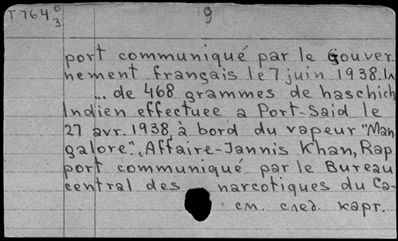 T764 0/3 9
port communiqué par le Gouver
nement français le 7 juin 1938. In
... de 468 grammes de haschich
Indien effectuee a Port-Said le
27 avr. 1938, à bord du vapeur "Man
galore". Affaire-Jannis Khan, Rap
port communiqué par le Bureau
central des narcotiques du Ca-
см. след. карт.